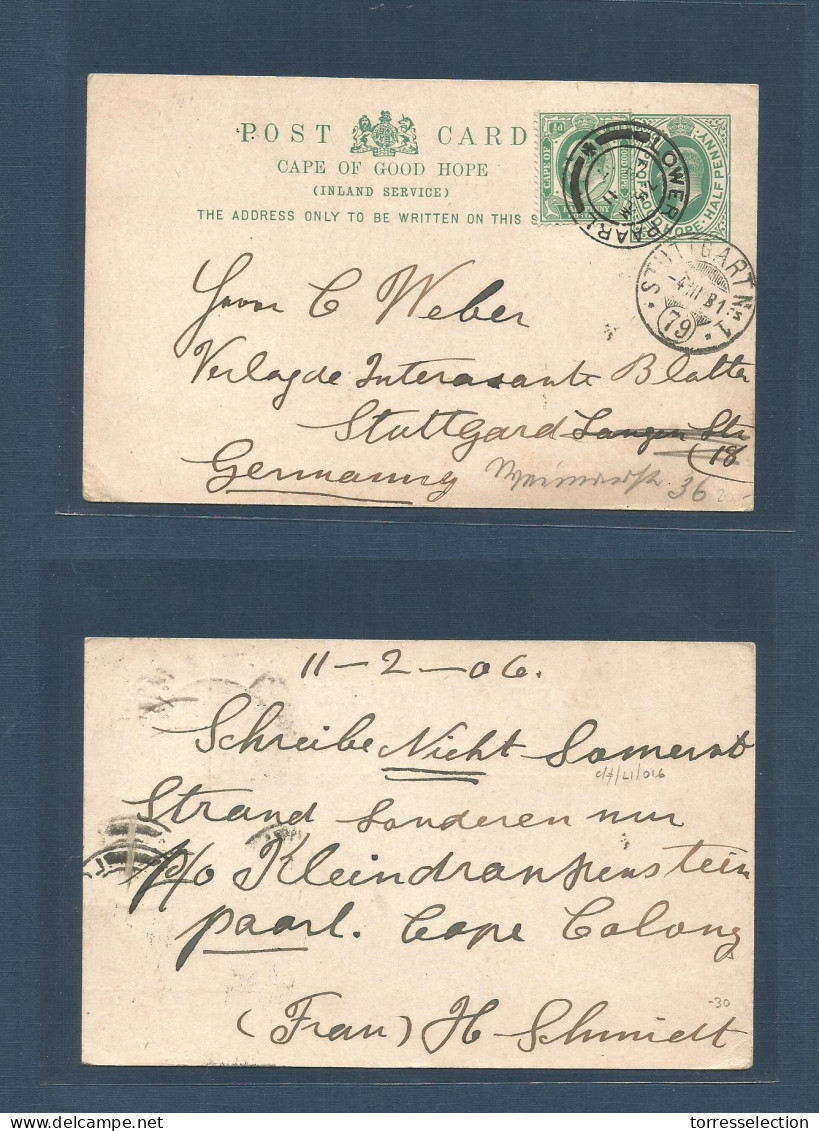 POST CARD
CAPE OF GOOD HOPE
(INLAND SERVICE)
THE ADDRESS ONLY TO BE WRITTEN ON THIS S
½d
CAPE OF
HALFPENNY
HOPE · HALF PENNY
LOWER PAARL
STUTTGART No 1
79
Herrn C Weber
Verlag de Interasante Blatter
Stuttgard Langen Str
18
Germanny
36
11-2-06.
Schreibe Nicht Somerset
Strand sonderen nur
p/o Kleindrankenstein
paarl. Cape Colony
-30
(Frau) H Schmidt
torresselection